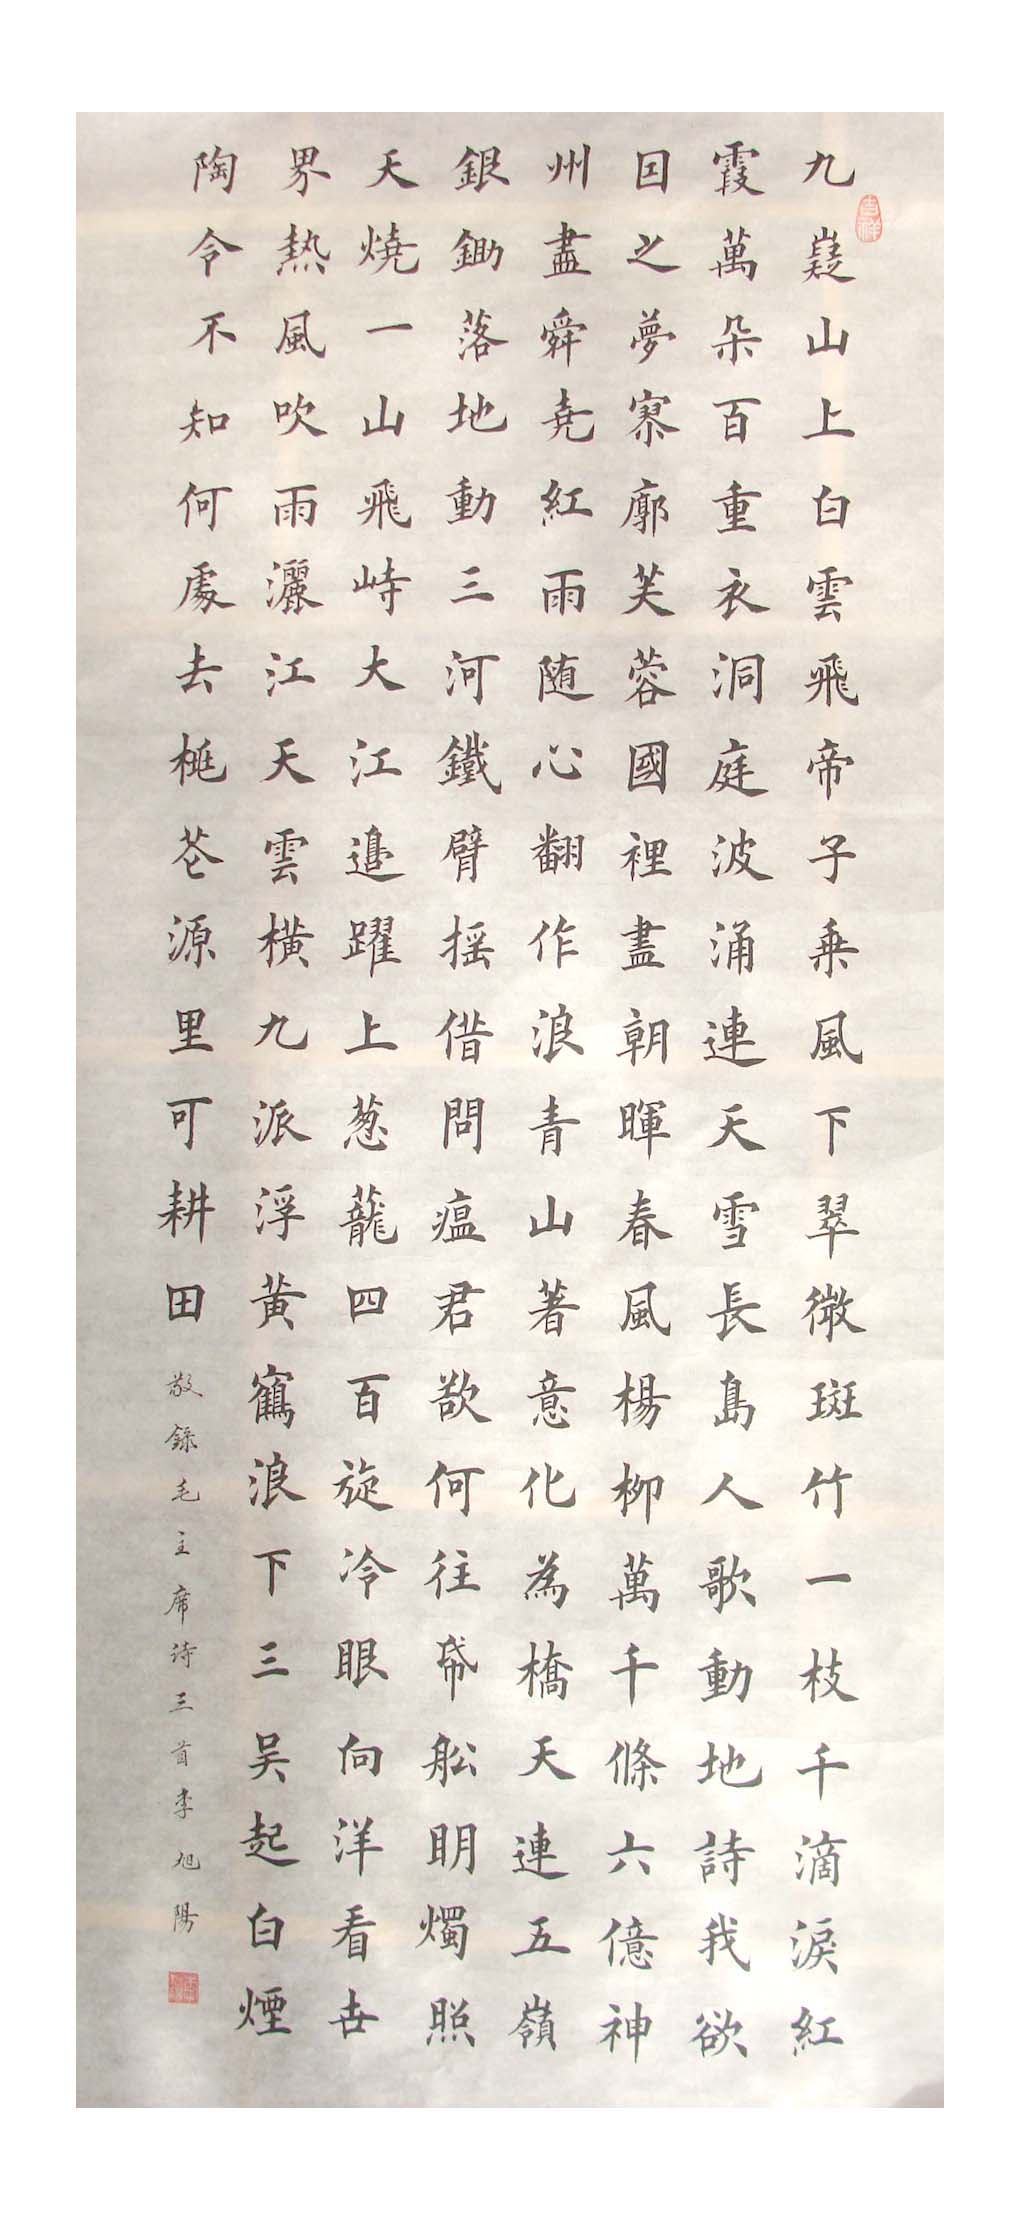 吉祥
九嶷山上白雲飛帝子乘風下翠微斑竹一枝千滴淚紅
霞萬朵百重衣洞庭波涌連天雪長島人歌動地詩我欲
因之夢寥廓芙蓉國裡盡朝暉春風楊柳萬千條六億神
州盡舜堯紅雨随心翻作浪青山著意化為橋天連五嶺
銀鋤落地動三河鐵臂摇借問瘟君欲何往帋船明燭照
天燒一山飛峙大江邊躍上葱蘢四百旋冷眼向洋看世
界熱風吹雨灑江天雲橫九派浮黄鶴浪下三吴起白煙
陶令不知何處去桃花源里可耕田
敬錄毛主席诗三首李旭陽